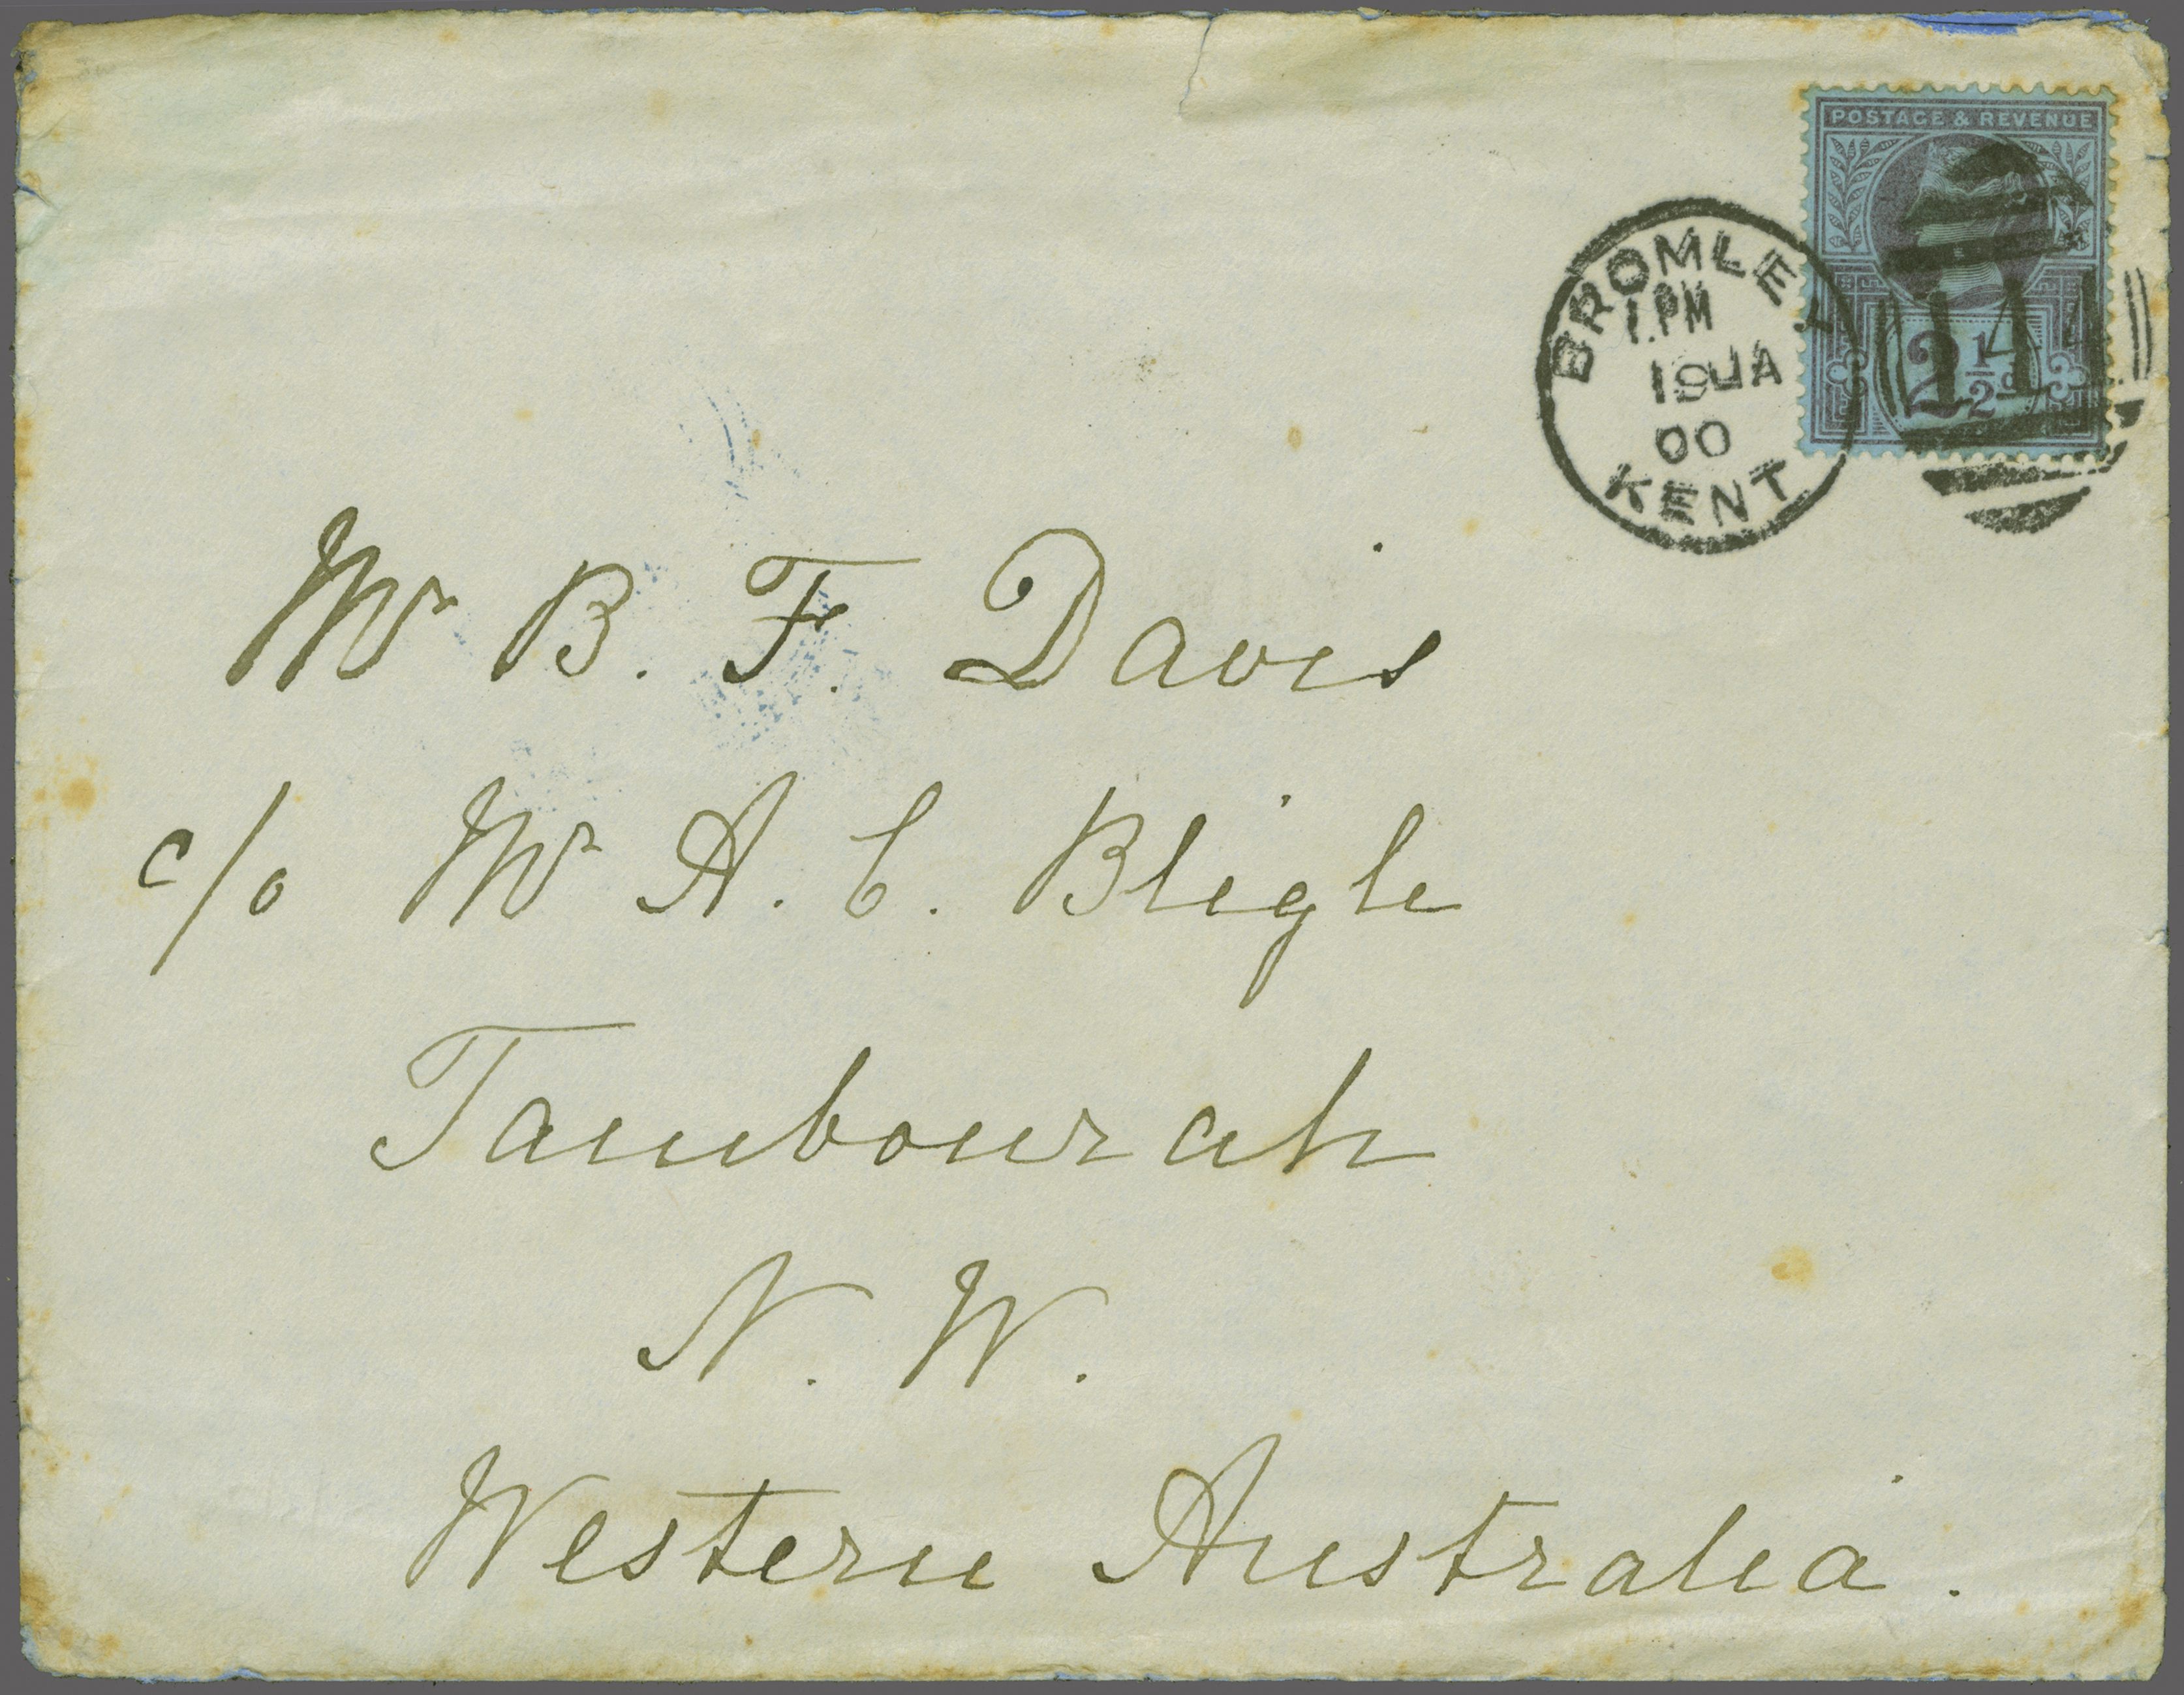 POSTAGE & REVENUE
BROMLEY
1.PM
19 JA
00
KENT
2½d
Mr B. F. Davis
c/o Mr A. C. Bligh
Tambourah
N. W.
Western Australia.